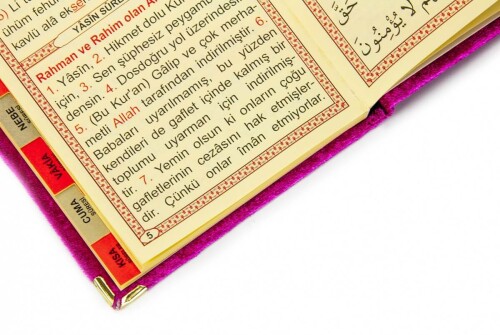 ühüm fehüm
kavlü alâ ekser
YÂSİN SÛRE
Rahman ve Rahim olan Al
1. Yâsîn. 2. Hikmet dolu Kur
için, 3. Sen şüphesiz peygamb
densin. 4. Dosdoğru yol üzerindesin
5. (Bu Kur'an) Gâlip ve çok merha-
metli Allah tarafından indirilmiştir. 6.
Babaları uyarılmamış, bu yüzden
kendileri de gaflet içinde kalmış bir
toplumu uyarman için indirilmiş-
tir. 7. Yemin olsun ki onların çoğu
gafletlerinin cezâsını hak etmişler-
dir. Çünkü onlar îmân etmiyorlar.
5
لَا يُؤْمِنُونَ
NEBE
SÛRESİ
VÂKIA
CUMA
SÛRESİ
KISA